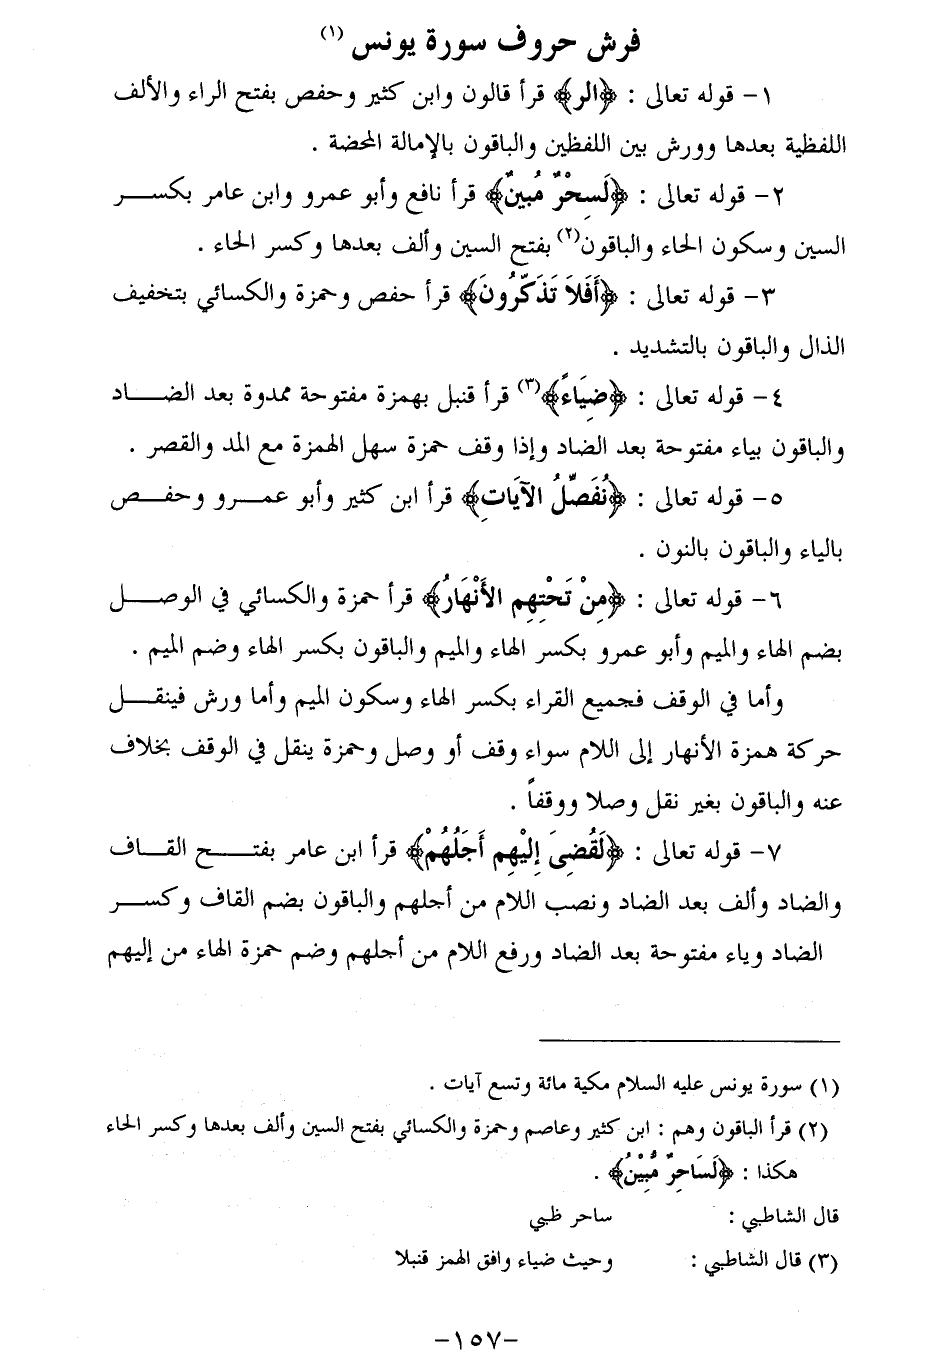 فرش حروف سورة يونس (١)
١- قوله تعالى : ﴿الر﴾ قرأ قالون وابن كثير وحفص بفتح الراء والألف
اللفظية بعدها وورش بين اللفظين والباقون بالإمالة المحضة .
٢- قوله تعالى : ﴿لَسِحْرٌ مُبِينٌ﴾ قرأ نافع وأبو عمرو وابن عامر بكســـر
السين وسكون الحاء والباقون(٢) بفتح السين وألف بعدها وكسر الحاء .
٣- قوله تعالى : ﴿أَفَلاَ تَذَكَّرُونَ﴾ قرأ حفص وحمزة والكسائي بتخفيف
الذال والباقون بالتشديد .
٤- قوله تعالى : ﴿ضِيَاءً﴾(٣) قرأ قنبل بهمزة مفتوحة ممدوة بعد الضـــاد
والباقون بياء مفتوحة بعد الضاد وإذا وقف حمزة سهل الهمزة مع المد والقصر .
٥- قوله تعالى : ﴿نُفَصِّلُ الآيَاتِ﴾ قرأ ابن كثير وأبو عمـــرو وحفـــص
بالياء والباقون بالنون .
٦- قوله تعالى : ﴿مِنْ تَحْتِهِم الأَنْهَارُ﴾ قرأ حمزة والكسائي في الوصـــل
بضم الهاء والميم وأبو عمرو بكسر الهاء والميم والباقون بكسر الهاء وضم الميم .
وأما في الوقف فجميع القراء بكسر الهاء وسكون الميم وأما ورش فينقـــل
حركة همزة الأنهار إلى اللام سواء وقف أو وصل وحمزة ينقل في الوقف بخلاف
عنه والباقون بغير نقل وصلا ووقفاً .
٧- قوله تعالى : ﴿لَقُضِىَ إِلَيْهِم أَجَلُهُمْ﴾ قرأ ابن عامر بفتـــح القـــاف
والضاد وألف بعد الضاد ونصب اللام من أجلهم والباقون بضم القاف وكســـر
الضاد وياء مفتوحة بعد الضاد ورفع اللام من أجلهم وضم حمزة الهاء من إليهم
(١) سورة يونس عليه السلام مكية مائة وتسع آيات .
(٢) قرأ الباقون وهم : ابن كثير وعاصم وحمزة والكسائي بفتح السين وألف بعدها وكسر الحاء
هكذا : ﴿لَسَاحِرٌ مُّبِيْنُ﴾ .
قال الشاطبي : ساحر ظبي
(٣) قال الشاطبي : وحيث ضياء وافق الهمز قنبلا
-١٥٧-